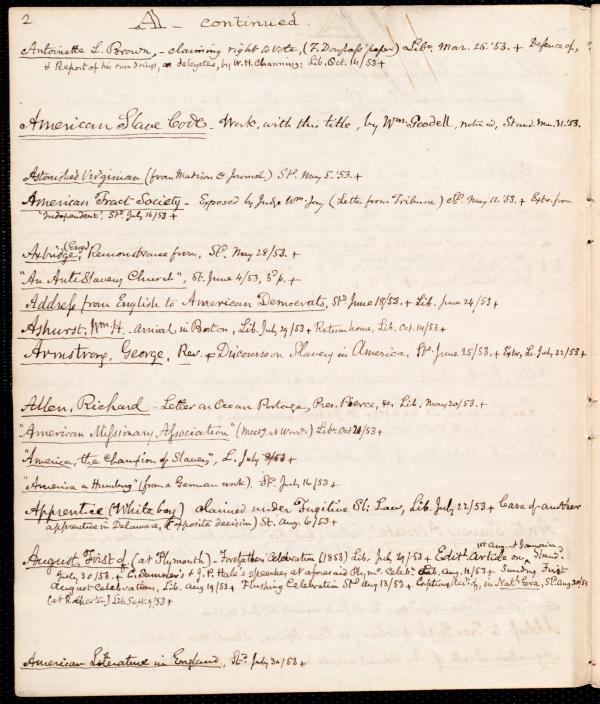 2
A - continued.
Antoinette L. Brown, - claiming right to vote, (F. Douglass' paper) Libr. Mar. 25. '53. + Defence of,
& Report of his own doings, as delegates, by W. H. Channing: Lib. Oct. 14/53 +
American Slave Code - Work, with this title, by Wm. Goodell, noticed, Stand. Mar. 31. '53.
Astonished Virginian (from Madison Co. Journal) Std. May 5. '53. +
American Tract Society - Exposed by Judge Wm. Jay (Letter from Tribune) Std. May 12. '53. + Extr. from
'Independent', Std. July 16/53 +
Axbridge, (Eng.) Remonstrance from, Std. May 28/53. +
"An Anti Slavery Church", St. June 4/53, 3d p. +
Address from English to American Democrats, Std June 18/53. + Lib. June 24/53 +
Ashurst, Wm. H. - arrival in Boston, Lib. July 29/53 + Return home, Lib. Oct. 14/53 +
Armstrong, George, Rev. - Discourse on Slavery in America, Std. June 25/53 + Extr, L. July 22/53 +
Allen, Richard - Letter on Ocean Postage, Pres. Pierce, &c, Lib. May 20/53. +
"American Missionary Association" (Meetg. at Worcr.) Libr. Oct 28/53 +
"America, the Champion of Slavery", L. July 8/53 +
"America a Humbug" (from a German work). St. July 16/53 +
Apprentice (White boy) claimed under Fugitive Sl. Law, Lib. July 22/53 + Case of another
apprentice in Delaware, (opposite decision) St. Aug. 6/53 +
August, First of (at Plymouth) - Forefathers' Celebration (1853) Lib. July 29/53 + Edit'l Article on 1st Aug. & Jamaica, Stand.
July 30/53. + C. Sumner's & J. P. Hale's speeches at aforesaid Plym. Celebn. Lib. Aug. 12/53 + Sundry First
August Celebrations, Lib. Aug 19/53 + Flushing Celebration Std Aug 13/53 + in Nat'l Era, St. Aug 20/53
(at Rochester) Lib Sept. 9/53 +
American Literature in England, St. July 30/53 +